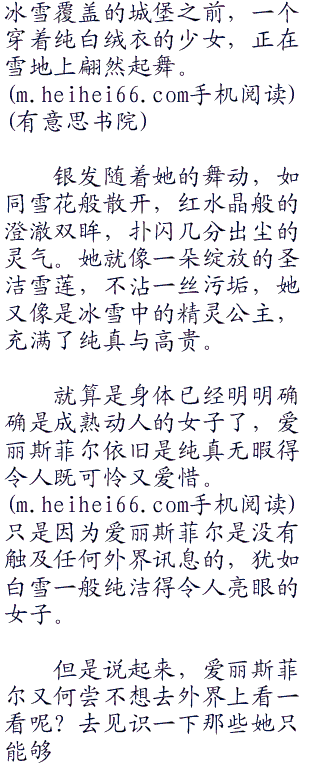 冰雪覆盖的城堡之前，一个
穿着纯白绒衣的少女，正在
雪地上翩然起舞。
(m.heihei66.com手机阅读)
(有意思书院)
银发随着她的舞动，如
同雪花般散开，红水晶般的
澄澈双眸，扑闪几分出尘的
灵气。她就像一朵绽放的圣
洁雪莲，不沾一丝污垢，她
又像是冰雪中的精灵公主，
充满了纯真与高贵。
就算是身体已经明明确
确是成熟动人的女子了，爱
丽斯菲尔依旧是纯真无暇得
令人既可怜又爱惜。
(m.heihei66.com手机阅读)
只是因为爱丽斯菲尔是没有
触及任何外界讯息的，犹如
白雪一般纯洁得令人亮眼的
女子。
但是说起来，爱丽斯菲
尔又何尝不想去外界上看一
看呢？去见识一下那些她只
能够